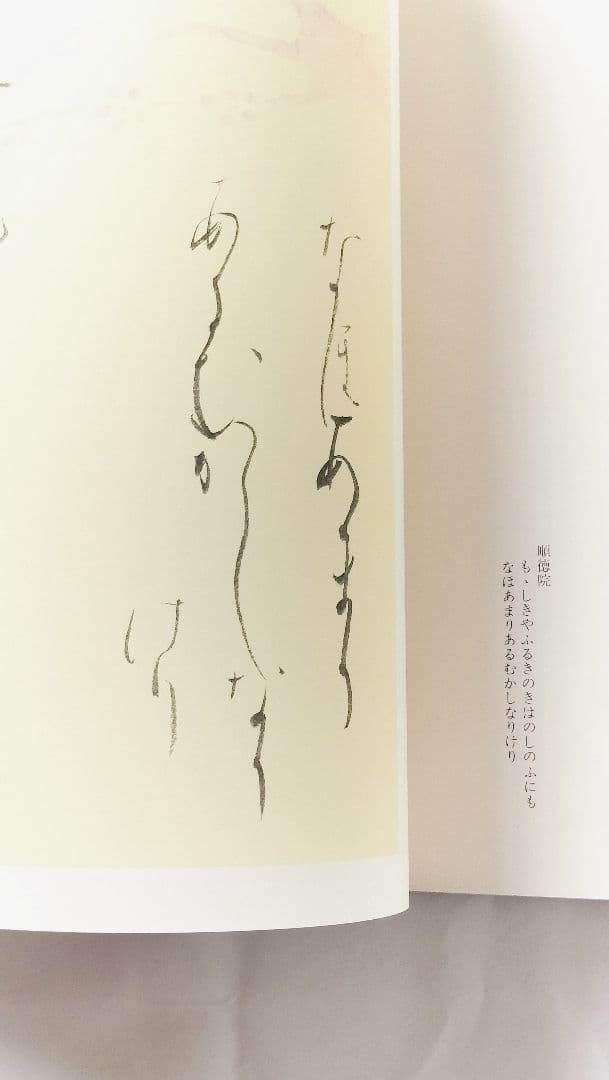 順徳院
もゝしきやふるきのきはのしのふにも
なほあまりあるむかしなりけり
なほあまり
あるむか
しなり
けり